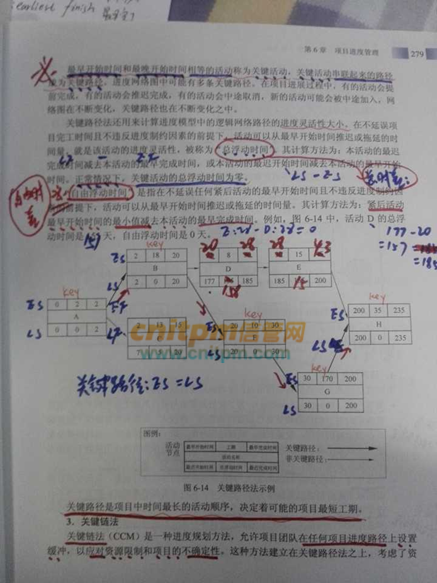 earliest finish
第6章 项目进度管理 279
最早开始时间和最晚开始时间相等的活动称为关键活动，关键活动串联起来的路径
称为关键路径。进度网络图中可能有多条关键路径。在项目进展过程中，有的活动会提
前完成，有的活动会推迟完成，有的活动会中途取消，新的活动可能会被中途加入，网
络图在不断变化，关键路径也在不断变化之中。
关键路径法还用来计算进度模型中的逻辑网络路径的进度灵活性大小。在不延误项
目完工时间且不违反进度制约因素的前提下，活动可以从最早开始时间推迟或拖延的时
间量，就是该活动的进度灵活性，被称为总浮动时间。其计算方法为：本活动的最迟
完成时间减去本活动的最早完成时间，或本活动的最迟开始时间减去本活动的最早开始
时间。正常情况下，关键活动的总浮动时间为零。
LS - ES
总时差
自由时差
自由浮动时间是指在不延误任何紧后活动的最早开始时间且不违反进度制约
因素的前提下，活动可以从最早开始时间推迟或拖延的时间量。其计算方法为：紧后活动
最早开始时间的最小值减去本活动的最早完成时间。例如，图 6-14 中，活动 D 的总浮
动时间是 天，自由浮动时间是 0 天。
E:28 - D:28 = 0
177 - 20
= 157
key
2 18 20
B
2 0 20
20 8 28
D
177 185
28 15 43
E
185 200
key
ES 0 2 2 EF
A
LS 0 0 2 LF
key
20 10 30
20 0 30
key
ES 200 35 235
H
LS 200 0 235
key
ES 30 170 200
G
LS 30 0 200
cnitpm信管网
www.cnitpm.com
关键路径：ES = LS
图例：
活动
节点
最早开始时间 工期 最早完成时间
活动名称
最迟开始时间 总浮动时间 最迟完成时间
关键路径：
非关键路径：
图 6-14 关键路径法示例
关键路径是项目中时间最长的活动顺序，决定着可能的项目最短工期。
3．关键链法
关键链法（CCM）是一种进度规划方法，允许项目团队在任何项目进度路径上设置
缓冲，以应对资源限制和项目的不确定性。这种方法建立在关键路径法之上，考虑了资